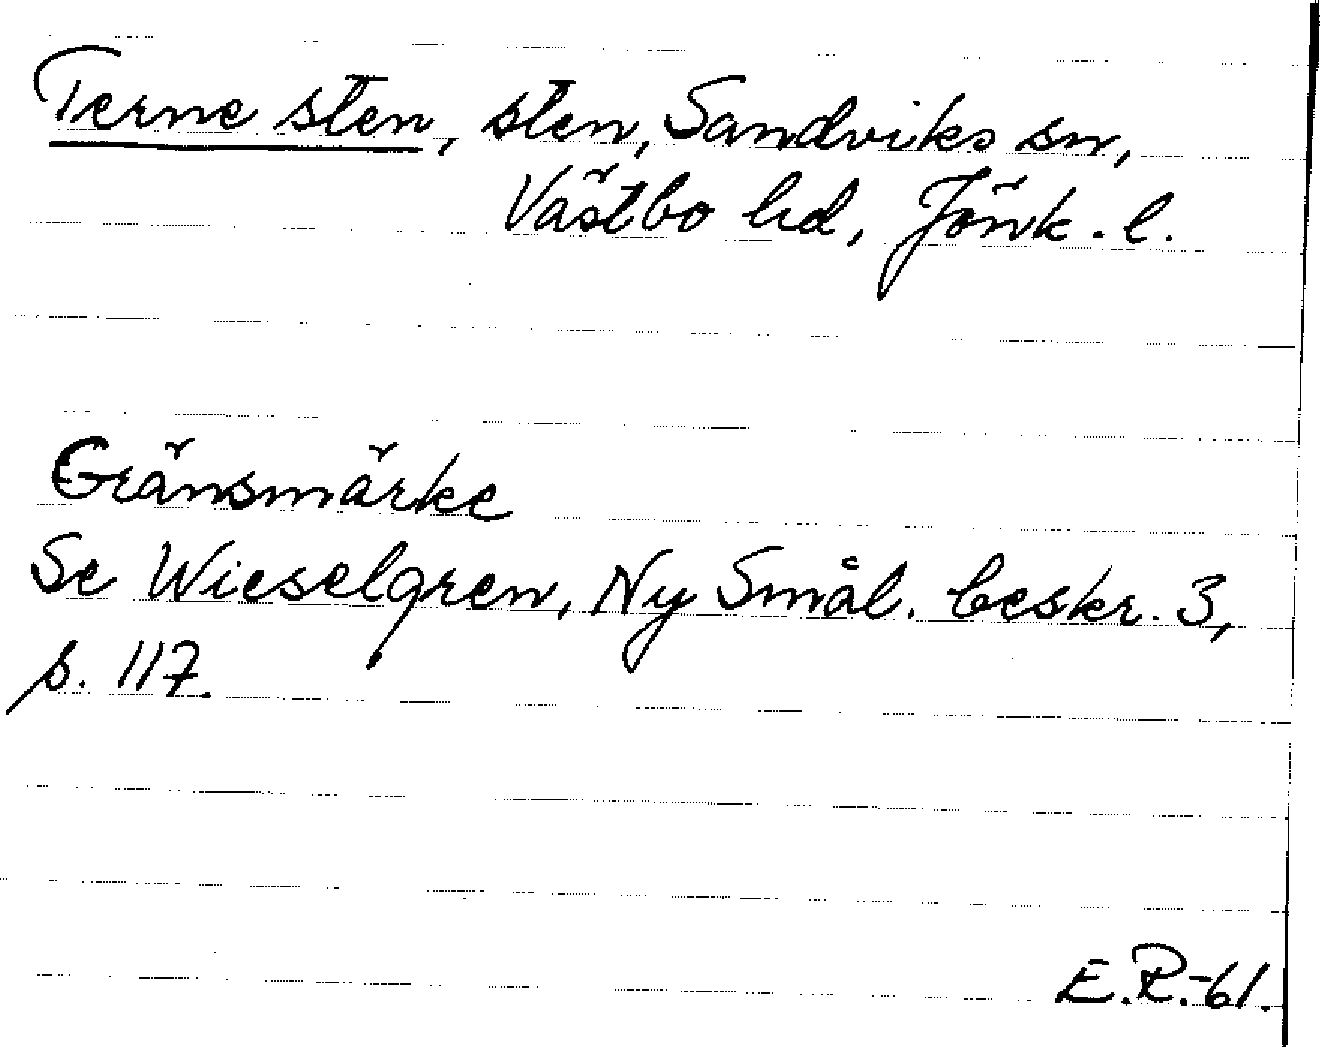 Terne sten, sten, Sandviks sn,
Västbo hd, Jönk. l.
Gränsmärke
Se Wieselgren, Ny Smål. beskr. 3,
s. 117.
E.R.-61.